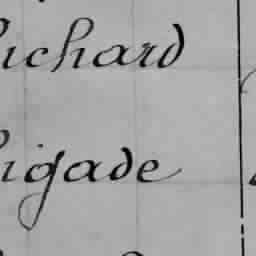 ichard
igade